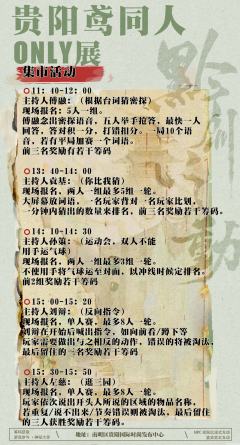 贵阳鸢同人
ONLY展
集市活动
11：40-12：00
主持人傅融：（根据台词猜密探）
现场报名：5人一组。
傅融念出密探语音，五人举手抢答，最快一人
回答，答对积一分，打错扣分。一局10个语
音，若有平局加赛一个词语。
前三名奖励有若干筹码
13：40-14：00
主持人袁基：（你比我猜）
现场报名，两人一组最多5组一轮。
大屏幕放词语，一名玩家背对一名玩家比划，
一分钟内猜出的数量来排名，前三名奖励若干筹码
14：10-14：30
主持人孙策：（运动会，双人不能
用手运气球）
现场报名，两人一组最多3组一轮。
不使用手将气球运至对面，以冲线时候定排名。
前2组奖励若干筹码
15：00-15：20
主持人刘辩：（反向指令）
现场报名，单人赛，最多8人一轮。
刘辩在开始后喊出指令，如向前看/蹲下等
玩家需要做出与之相反的动作，错误的将被淘汰。
最后留住的三名奖励若干筹码
15：30-15：50
主持人左慈：（逛三园）
现场报名，单人赛，最多8人一轮。
玩家依次说出开头人所说的区域的物品名称，
若重复/说不出来/节奏错误则被淘汰。最后留住
的三人获胜奖励若干筹码。